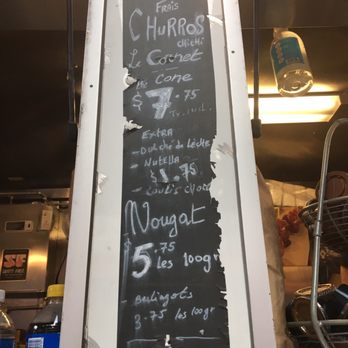 FRAIS
CHURROS
CHICHI
Le Cornet
Cone
$7.75
EXTRA
- Dulche de lèche
- Nutella
$1.75
- Coulis choco
Nougat
$5.75
les 100gr
- Berlingots
3.75 les 100gr